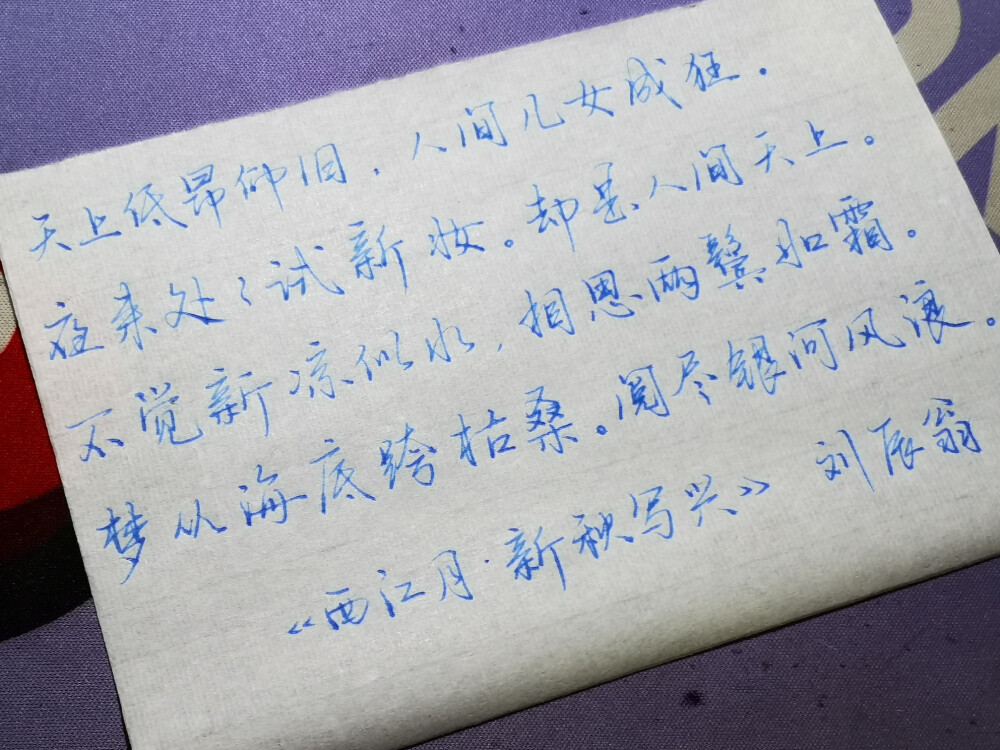 天上低昂仰旧，人间儿女成狂．
夜来处々试新妆。却是人间天上。
不觉新凉似水，相思两鬓如霜．
梦从海底跨枯桑。阅尽银河风浪。
《西江月·新秋写兴》 刘辰翁